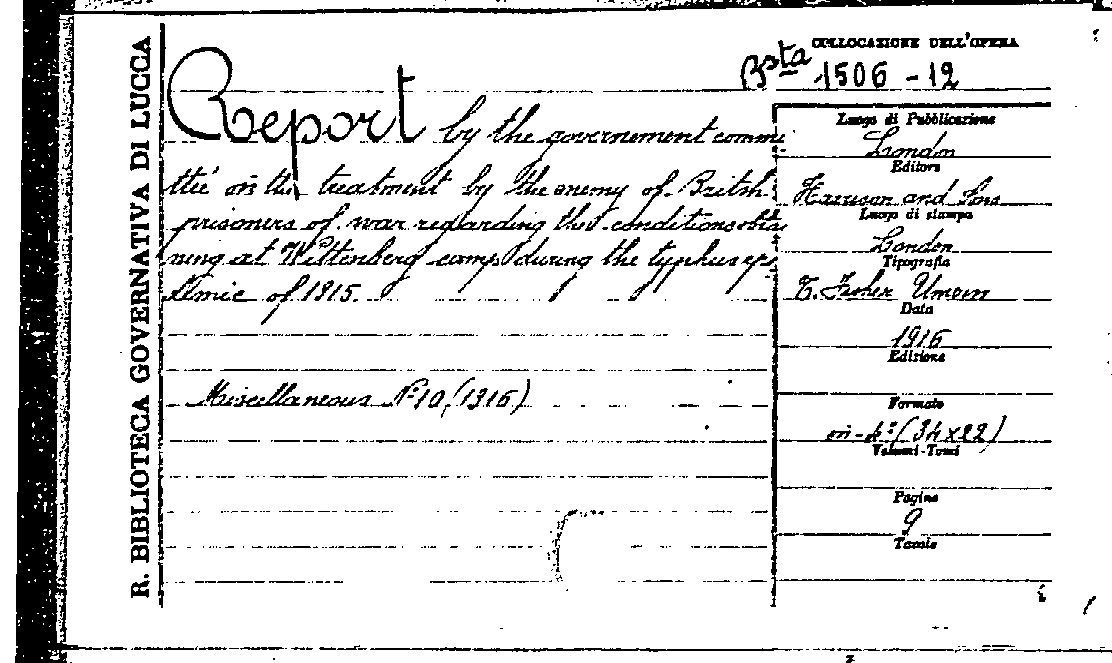 R. BIBLIOTECA GOVERNATIVA DI LUCCA
COLLOCAZIONE DELL'OPERA
Bsta 1506-12
Report by the governement commi
ttè on the treatment by the enemy of British
prisoners of war regarding the conditions obtai
ning at Wittenberg camp during the typhus epi
demic of 1915.
Miscellaneous N° 10 (1916)
Luogo di Pubblicazione
London
Editore
Harrison and Sons
Luogo di stampa
London
Tipografia
T. Fisher Unwin
Data
1916
Edizione
Formato
in-4° (34x22)
Volumi-Tomi
Pagine
9
Tavole